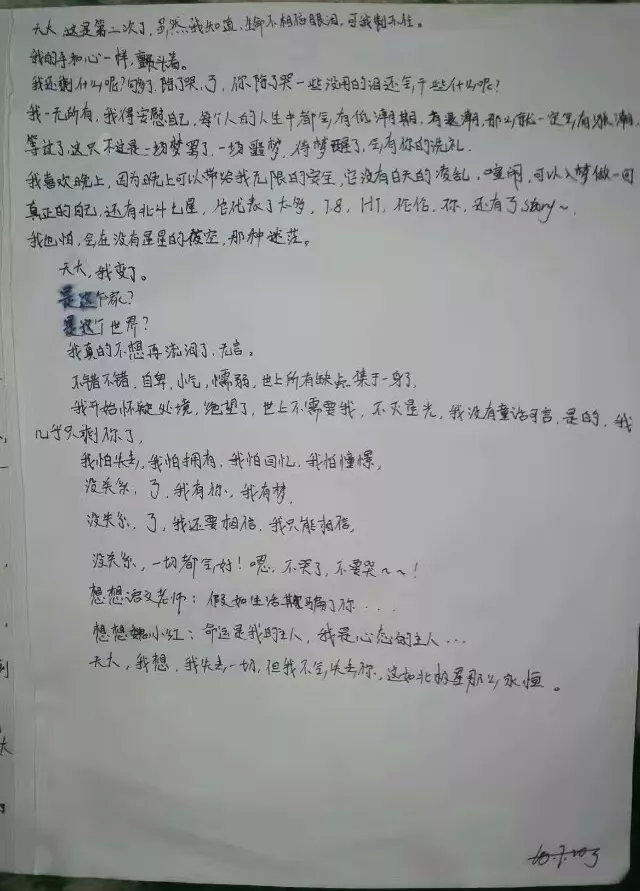 天大,这是第二次了,虽然我知道,生命不相信眼泪,可我制不住。
我的手和心一样,颤抖着。
我还剩什么呢?够了,除了哭,了,你除了哭一些没用的泪还会干些什么呢?
我一无所有,我得安慰自己,每个人的人生中都会有低潮期,有退潮,那么就一定会有涨潮,
等过了,这只不过是一场梦罢了,一场噩梦,待梦醒了,会有你的洗礼。
我喜欢晚上,因为晚上可以带给我无限的安全,它没有白天的凌乱,喧闹,可以入梦做一回
真正的自己,还有北斗七星,皆代表了大多,T.8,HT,你,还有了story~,
我也怕,会在没有星星的夜空,那种迷茫。
天大,我变了。
是这个家?
是这个世界?
我真的不想再流泪了,无言。
不错不错,自卑,小气,懦弱,世上所有缺点集于一身了,
我开始怀疑处境,绝望了,世上不需要我,不灭星光,我没有童话可言,是的,我
几乎只剩你了,
我怕失去,我怕拥有,我怕回忆,我怕憧憬,
没关系,了,我有你,我有梦,
没关系,了,我还要相信,我只能相信,
没关系,一切都会好!嗯,不哭了,不要哭~~!
想想语文老师:假如生活欺骗了你...
想想小红:命运是我的主人,我是心态的主人...
天大,我想,我失去一切,但我不会失去你,这如北极星那么永恒。